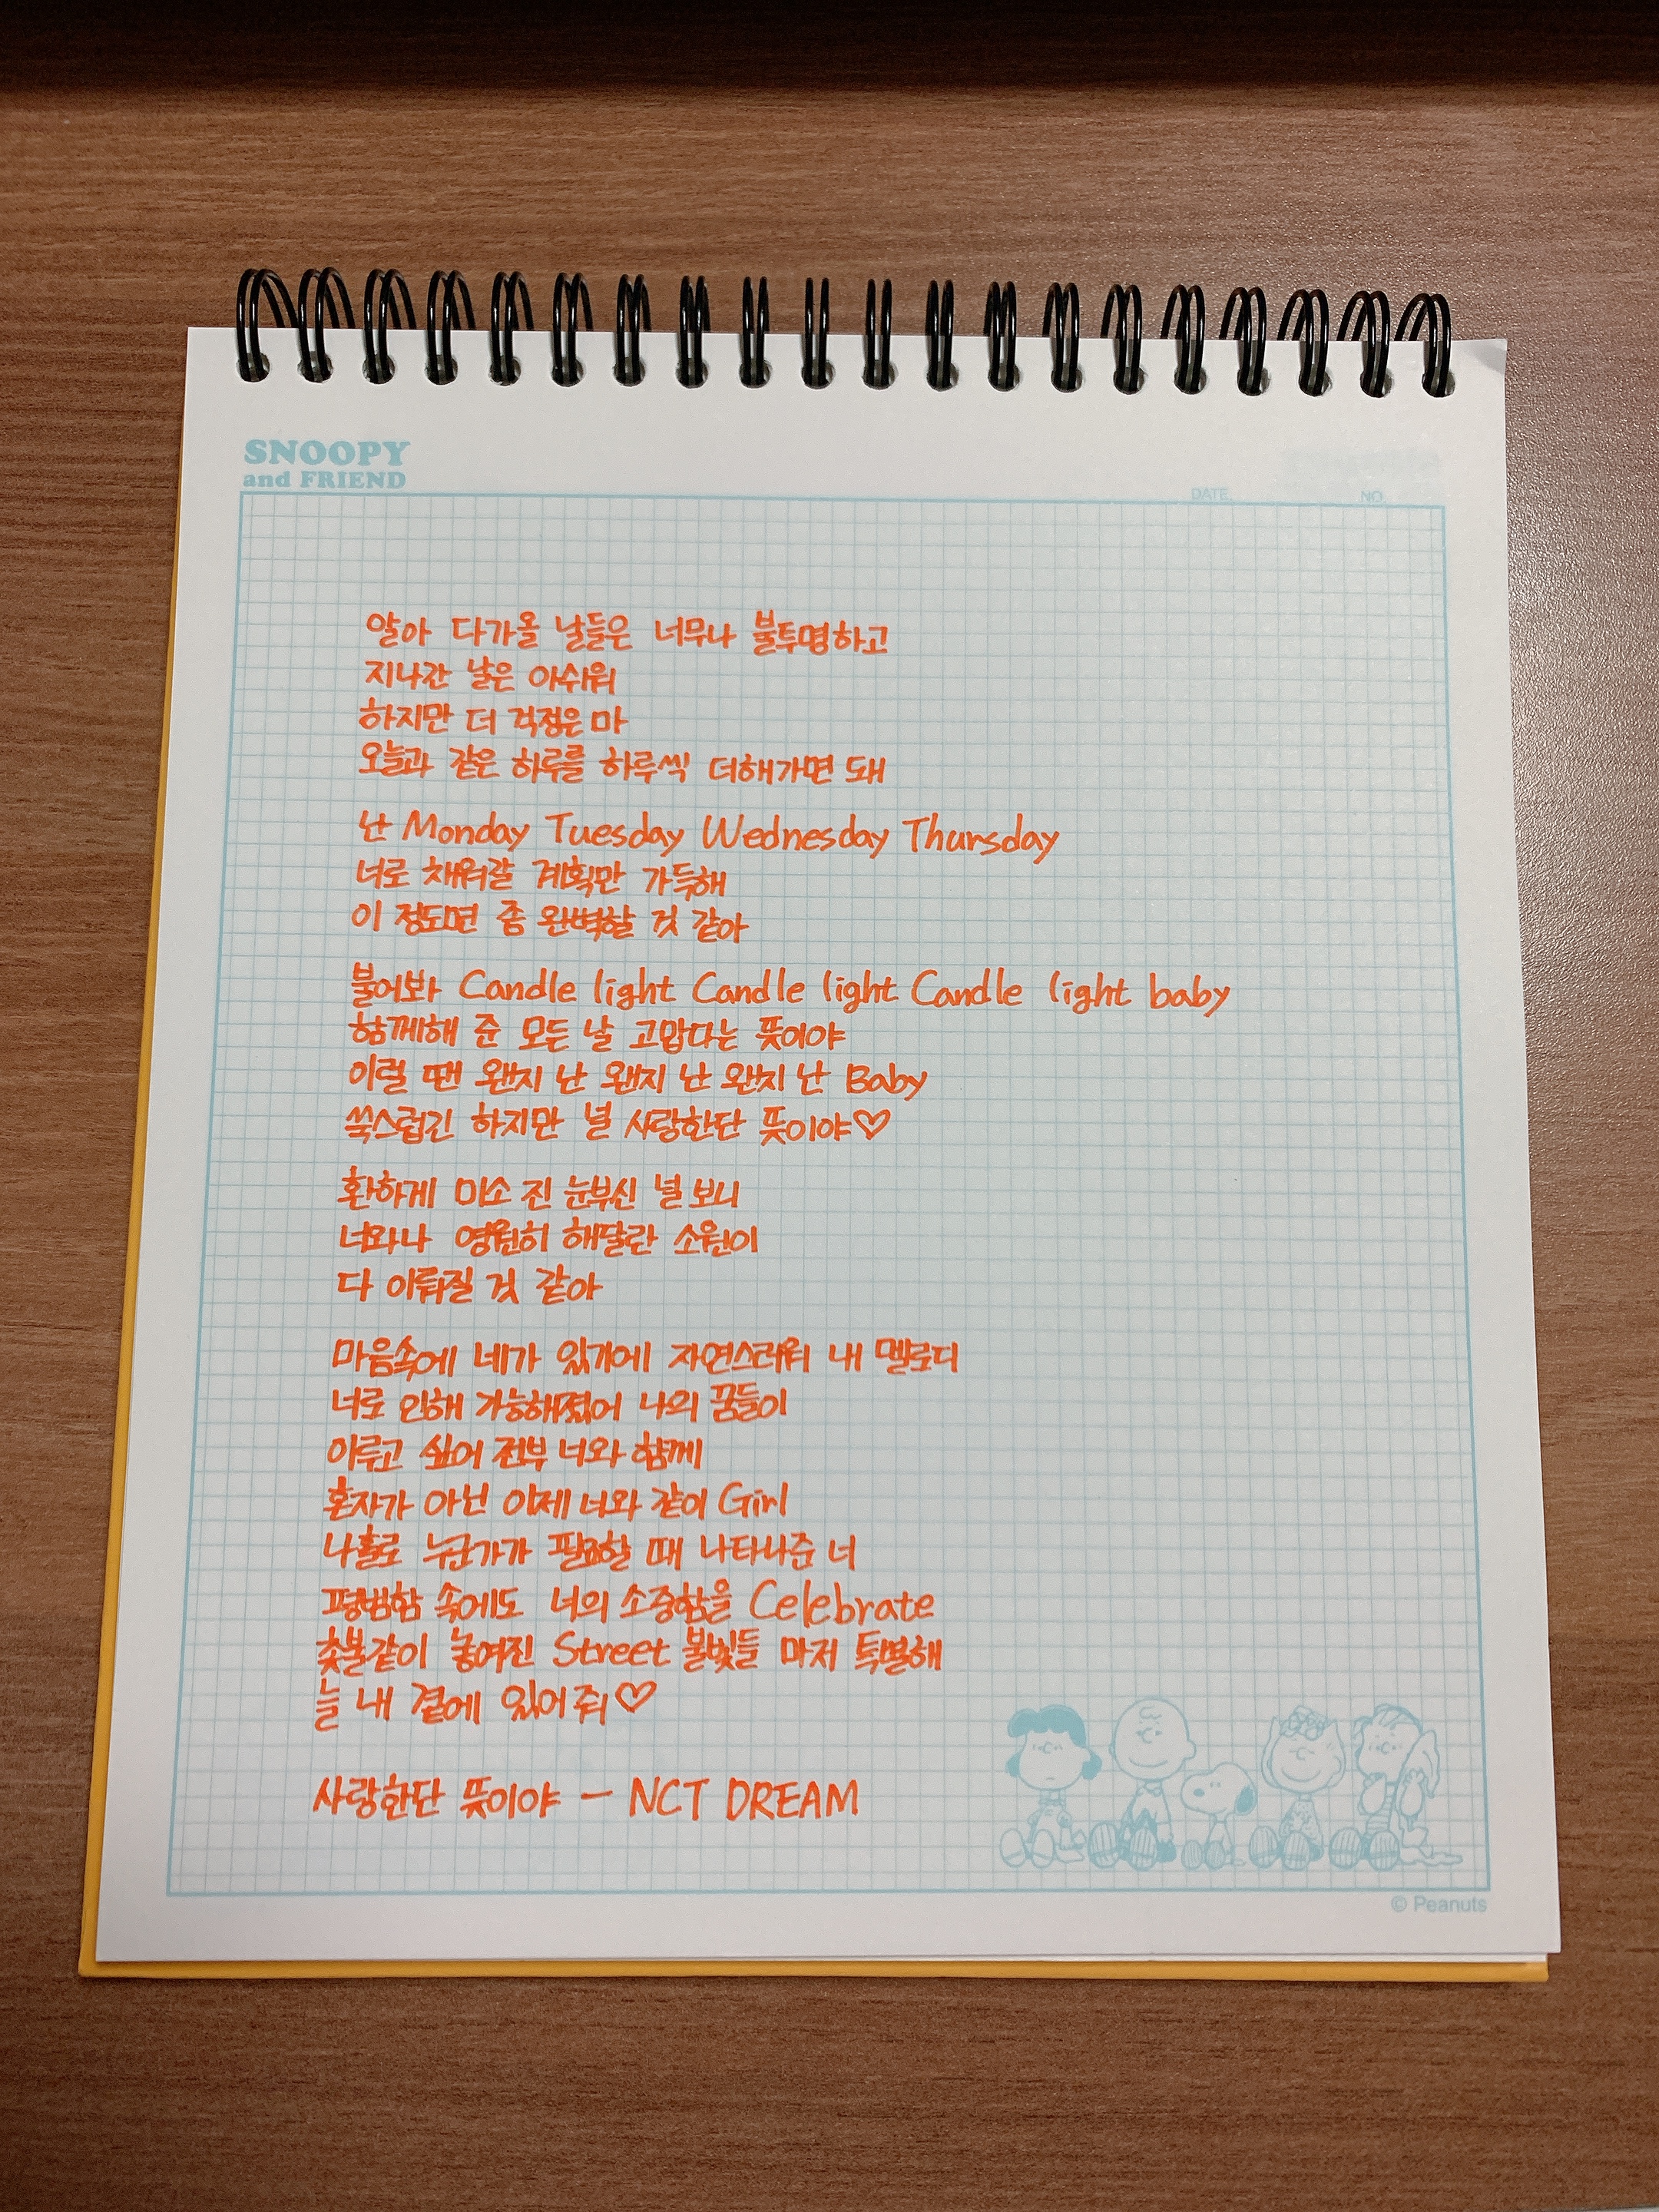 SNOOPY
and FRIEND
DATE. NO.
알아 다가올 날들은 너무나 불투명하고
지나간 날은 아쉬워
하지만 더 걱정은 마
오늘과 같은 하루를 하루씩 더해가면 돼
난 Monday Tuesday Wednesday Thursday
너로 채워갈 계획만 가득해
이 정도면 좀 완벽할 것 같아
불어봐 Candle light Candle light Candle light baby
함께해 준 모든 날 고맙다는 뜻이야
이럴 땐 왠지 난 왠지 난 왠지 난 Baby
쑥스럽긴 하지만 널 사랑한단 뜻이야♡
환하게 미소 진 눈부신 널 보니
너와나 영원히 해달란 소원이
다 이뤄질 것 같아
마음속에 네가 있기에 자연스러워 내 멜로디
너로 인해 가능해졌어 나의 꿈들이
이루고 싶어 전부 너와 함께
혼자가 아닌 이제 너와 같이 Girl
나홀로 누군가가 필요할 때 나타나준 너
평범함 속에도 너의 소중함을 Celebrate
촛불같이 놓여진 Street 불빛들 마저 특별해
늘 내 곁에 있어줘♡
사랑한단 뜻이야 - NCT DREAM
© Peanuts